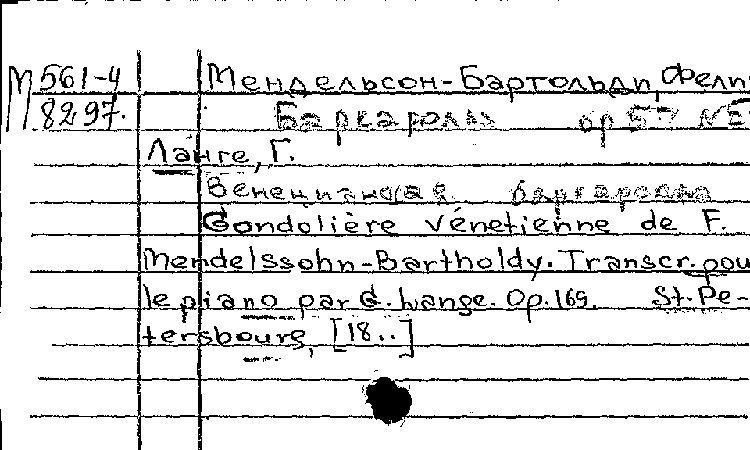 М 561-4 Мендельсон-Бартольди, Фели
8297. Баркаролла ор 57 №5
Ланге, Г.
Венецианская баркаролла
Gondolière vénetienne de F.
Mendelssohn-Bartholdy. Transcr. pou
le piano par G. Lange. Op. 169. St. Pe-
tersbourg, [18..]